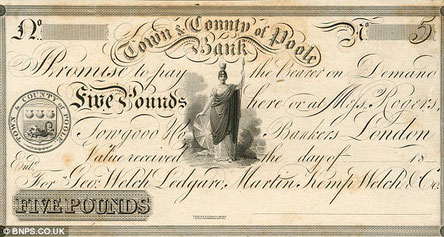 No. No. 5
Town & County of Poole
Bank
I Promise to pay the Bearer on Demand
Five Pounds here or at Messrs. Rogers,
TOWN & COUNTY OF POOLE
Towgood & Co. Bankers London
Value received the day of 18
Entd.
For Geo: Welch Ledgard, Martin Kemp Welch & Co.
FIVE POUNDS
© BNPS.CO.UK